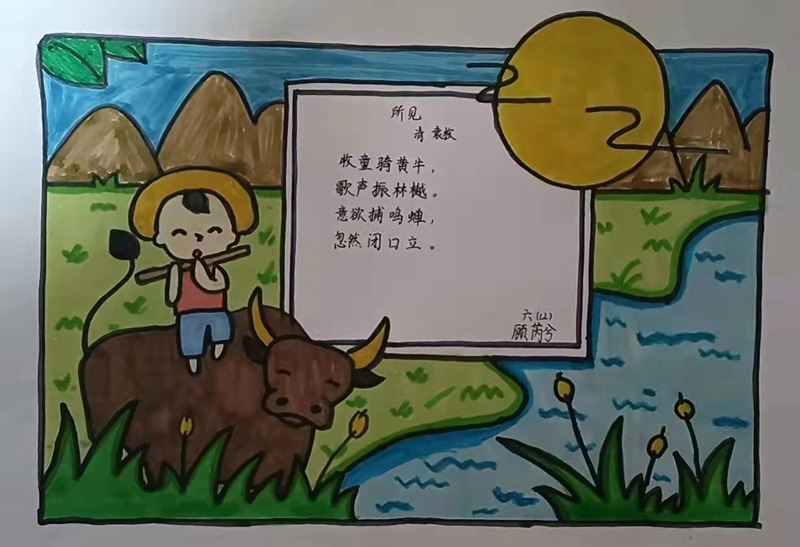 所见
清 袁枚
牧童骑黄牛，
歌声振林樾。
意欲捕鸣蝉，
忽然闭口立。
六(12)
顾芮兮